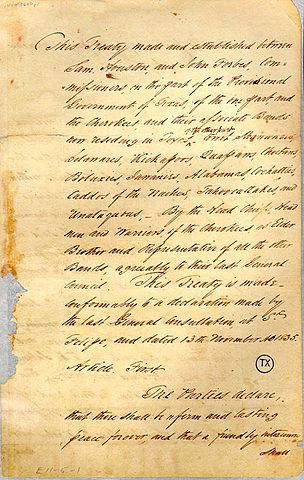 This Treaty made and established between
Sam. Houston, and John Forbes, Com-
missioners, on the part of the Provisional
Government of Texas, of the one part and
the Cherokees, and their associate Bands
now residing in Texas
of the other part,
Delawares, Kickapoos, Quapaws, Choctaws,
Boluxies, Jawanies, Alabamas, Cochatties
Caddos of the Naches, Tahoocatakes, and
Unataquous,_ By the Head Chiefs, Head
men and Warriors of the Cherokees, as Elder
Brother and Representative of all the other
Bands, agreeably to their last General
Council. This Treaty is made
conformably to a declaration made by
the last General Consultation at St.
Felipe, and dated 13th November A.D. 1835.
Article First
The Parties declare,
that there shall be a firm and lasting
peace forever, and that a friendly intercourse
Shall
TX
E11-6-1